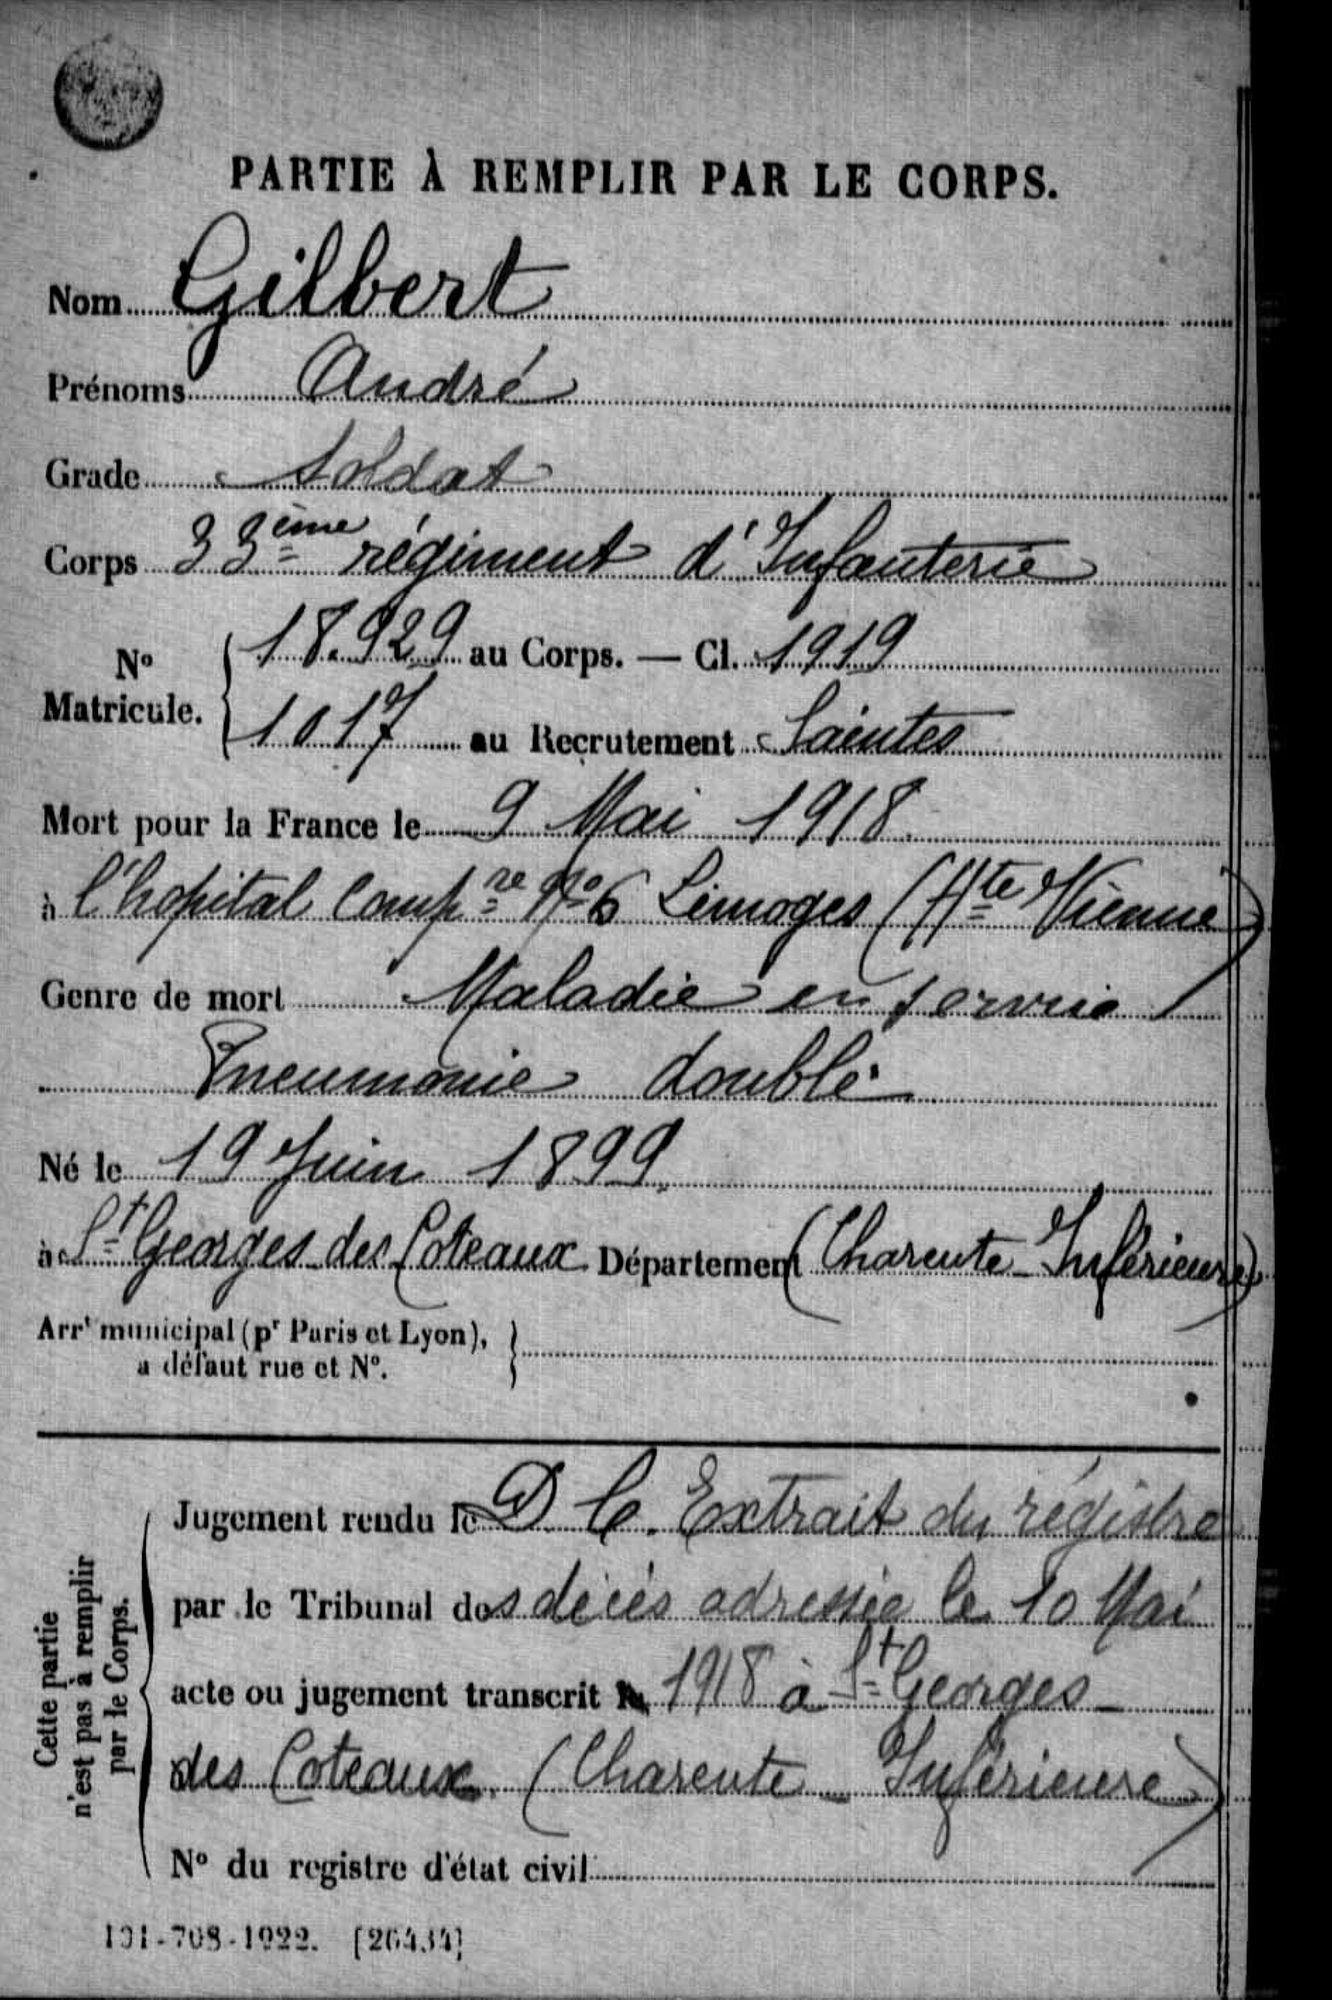 PARTIE À REMPLIR PAR LE CORPS.
Nom Gilbert
Prénoms André
Grade Soldat
Corps 33ème régiment d'Infanterie
No Matricule. { 18.929 au Corps. — Cl. 1919
1017 au Recrutement Saintes
Mort pour la France le 9 Mai 1918.
à l'hopital Compre No 6 Limoges (Hte Vienne)
Genre de mort Maladie en service
Pneumonie double
Né le 19 Juin 1899.
à St Georges des Coteaux Département (Charente-Inférieure)
Arrt municipal (pr Paris et Lyon), }
a défaut rue et No.
Cette partie n'est pas à remplir par le Corps.
Jugement rendu le D. C. Extrait du régistre
par le Tribunal des décès adressée le 10 Mai
acte ou jugement transcrit le 1918 à St Georges
des Coteaux. (Charente-Inférieure)
No du registre d'état civil
101-708-1922. [26434]